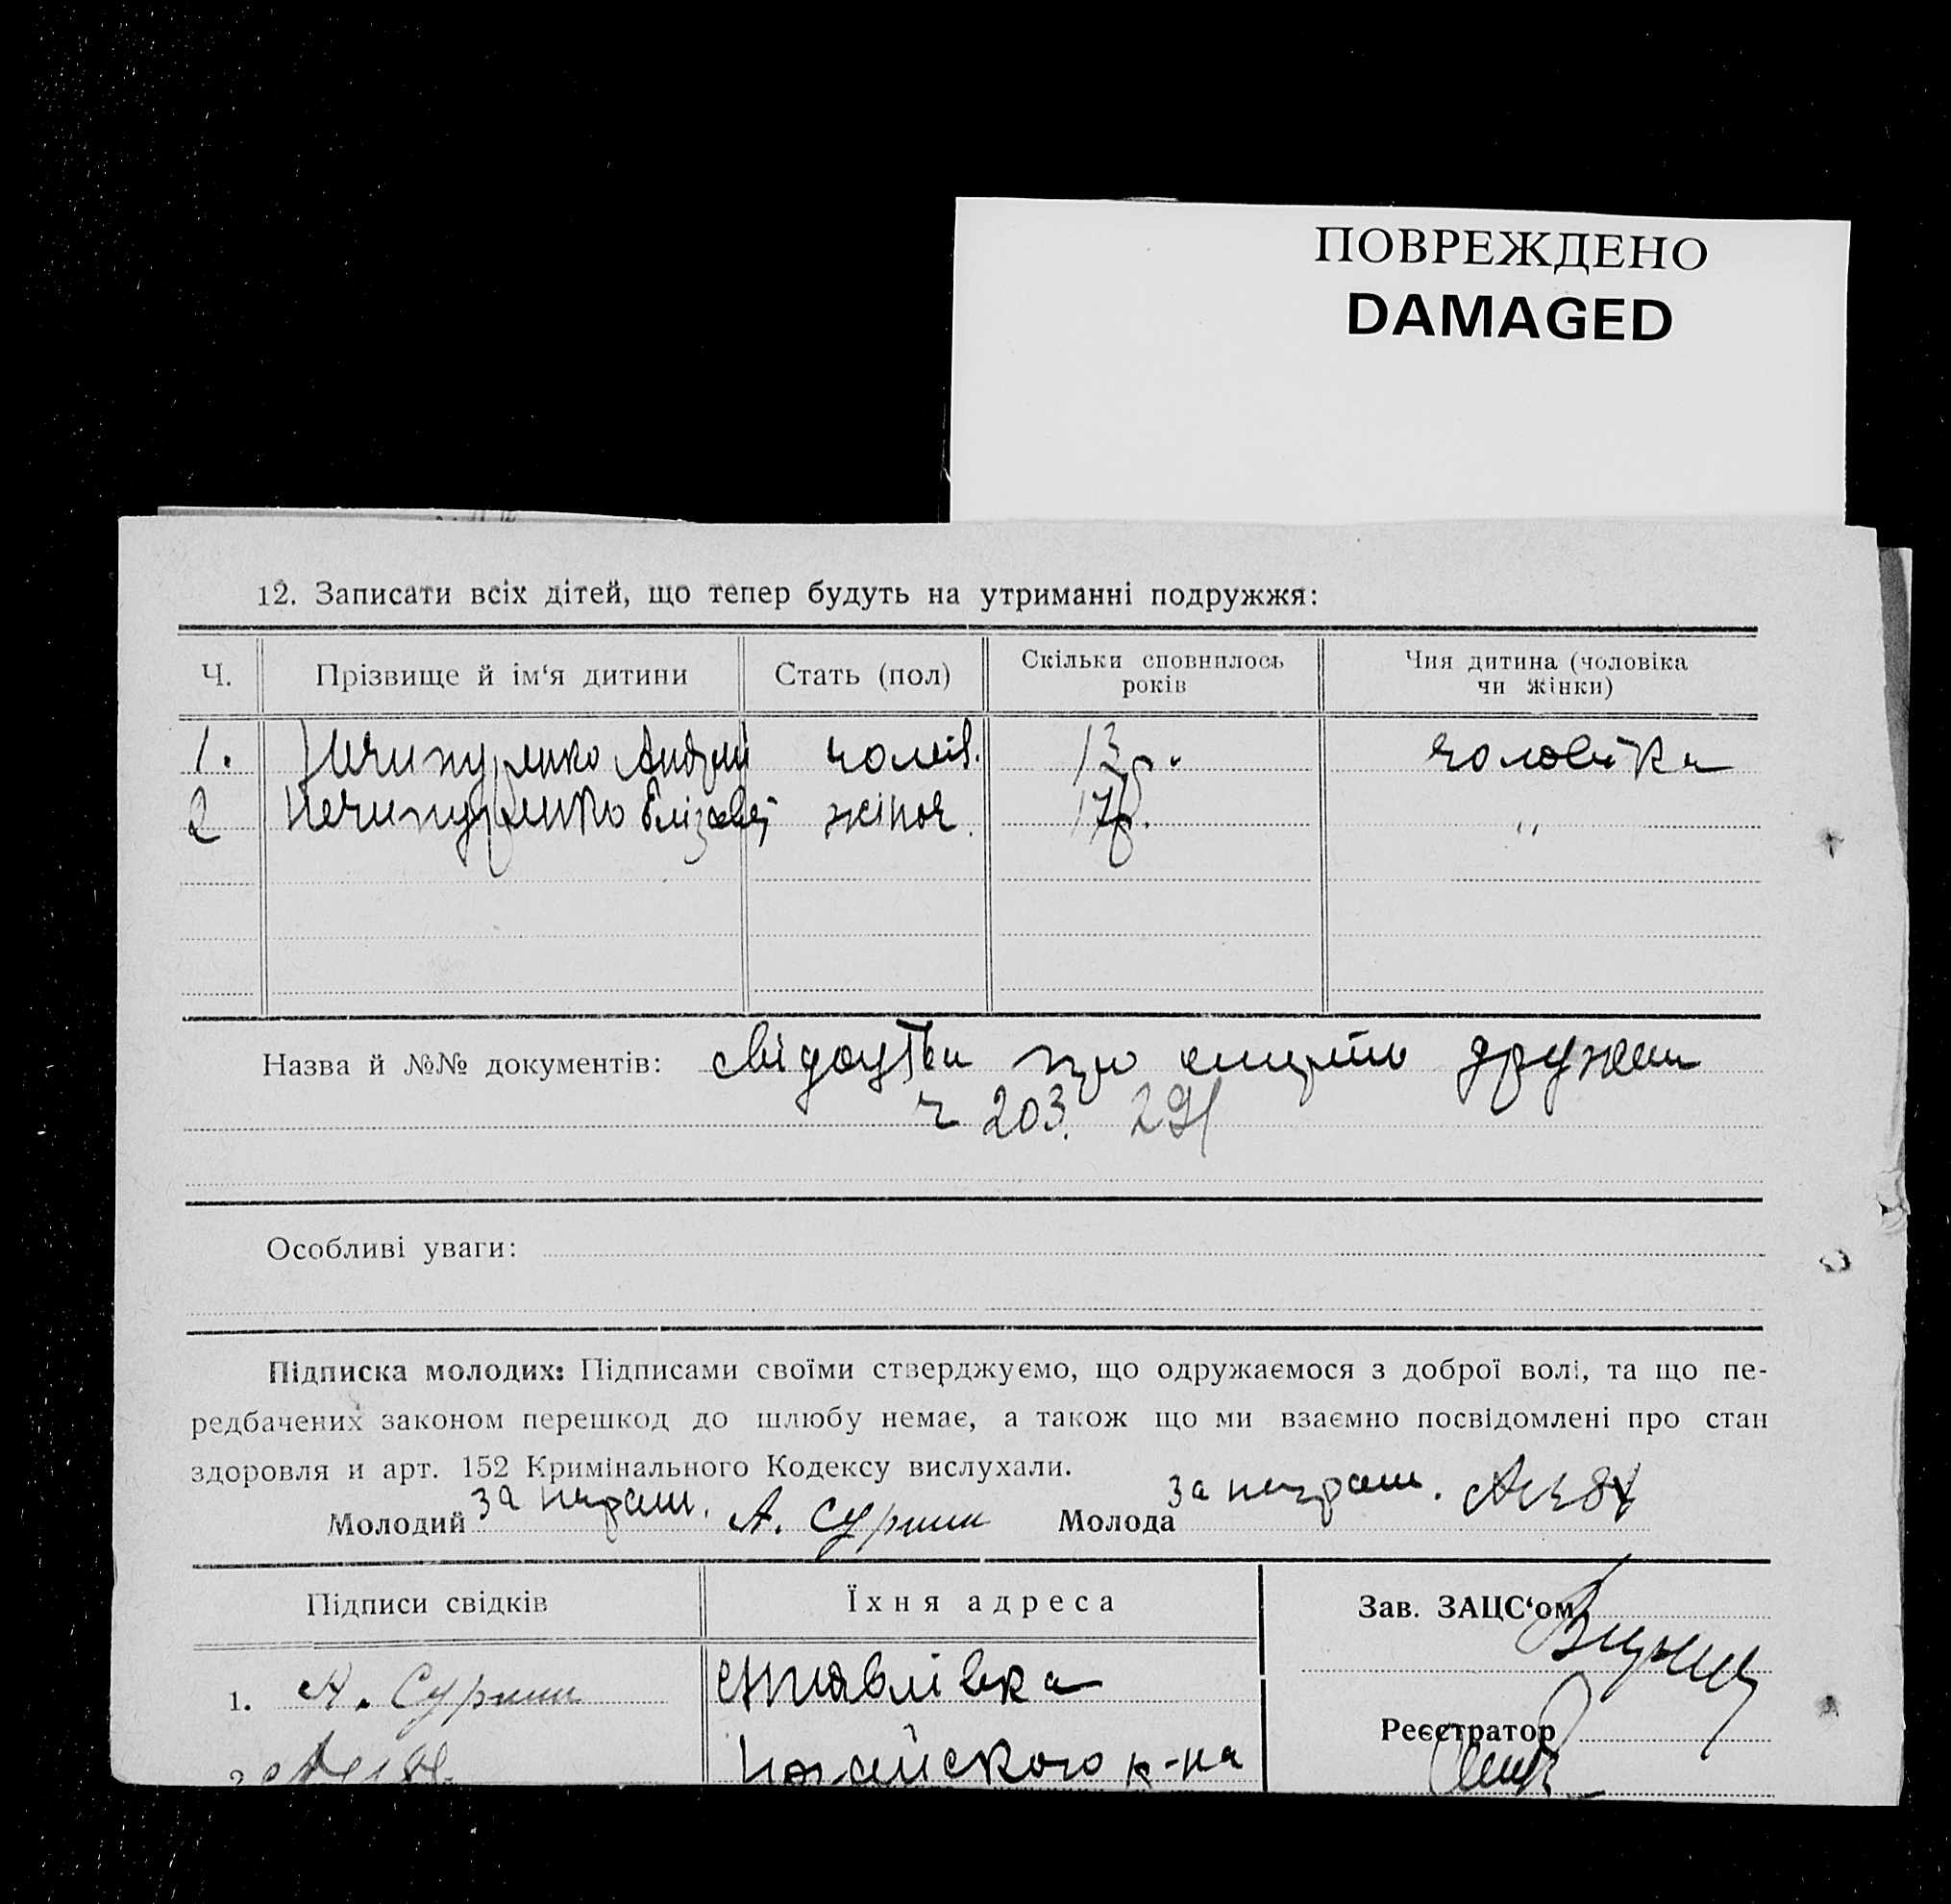 ПОВРЕЖДЕНО
DAMAGED
12. Записати всіх дітей, що тепер будуть на утриманні подружжя:
Ч. Прізвище й ім‘я дитини Стать (пол) Скільки сповнилось років Чия дитина (чоловіка чи жінки)
1. Ничипуренко Андрій чолов. 13 р. чоловіка
2 Ничипуренко Елізавет жіноч. 17 р. "
Назва й №№ документів: свідоцтва про смерть дружени
ч 203. 291
Особливі уваги:
Підписка молодих: Підписами своїми стверджуємо, що одружаємося з доброї волі, та що пе-
редбачених законом перешкод до шлюбу немає, а також що ми взаємно посвідомлені про стан
здоровля и арт. 152 Кримінального Кодексу вислухали.
Молодий за неграм. А. Сурмин Молода за неграм.
Підписи свідків Їхня адреса Зав. ЗАЦС‘ом
1. А. Сурмин
Реєстратор
2 р-на